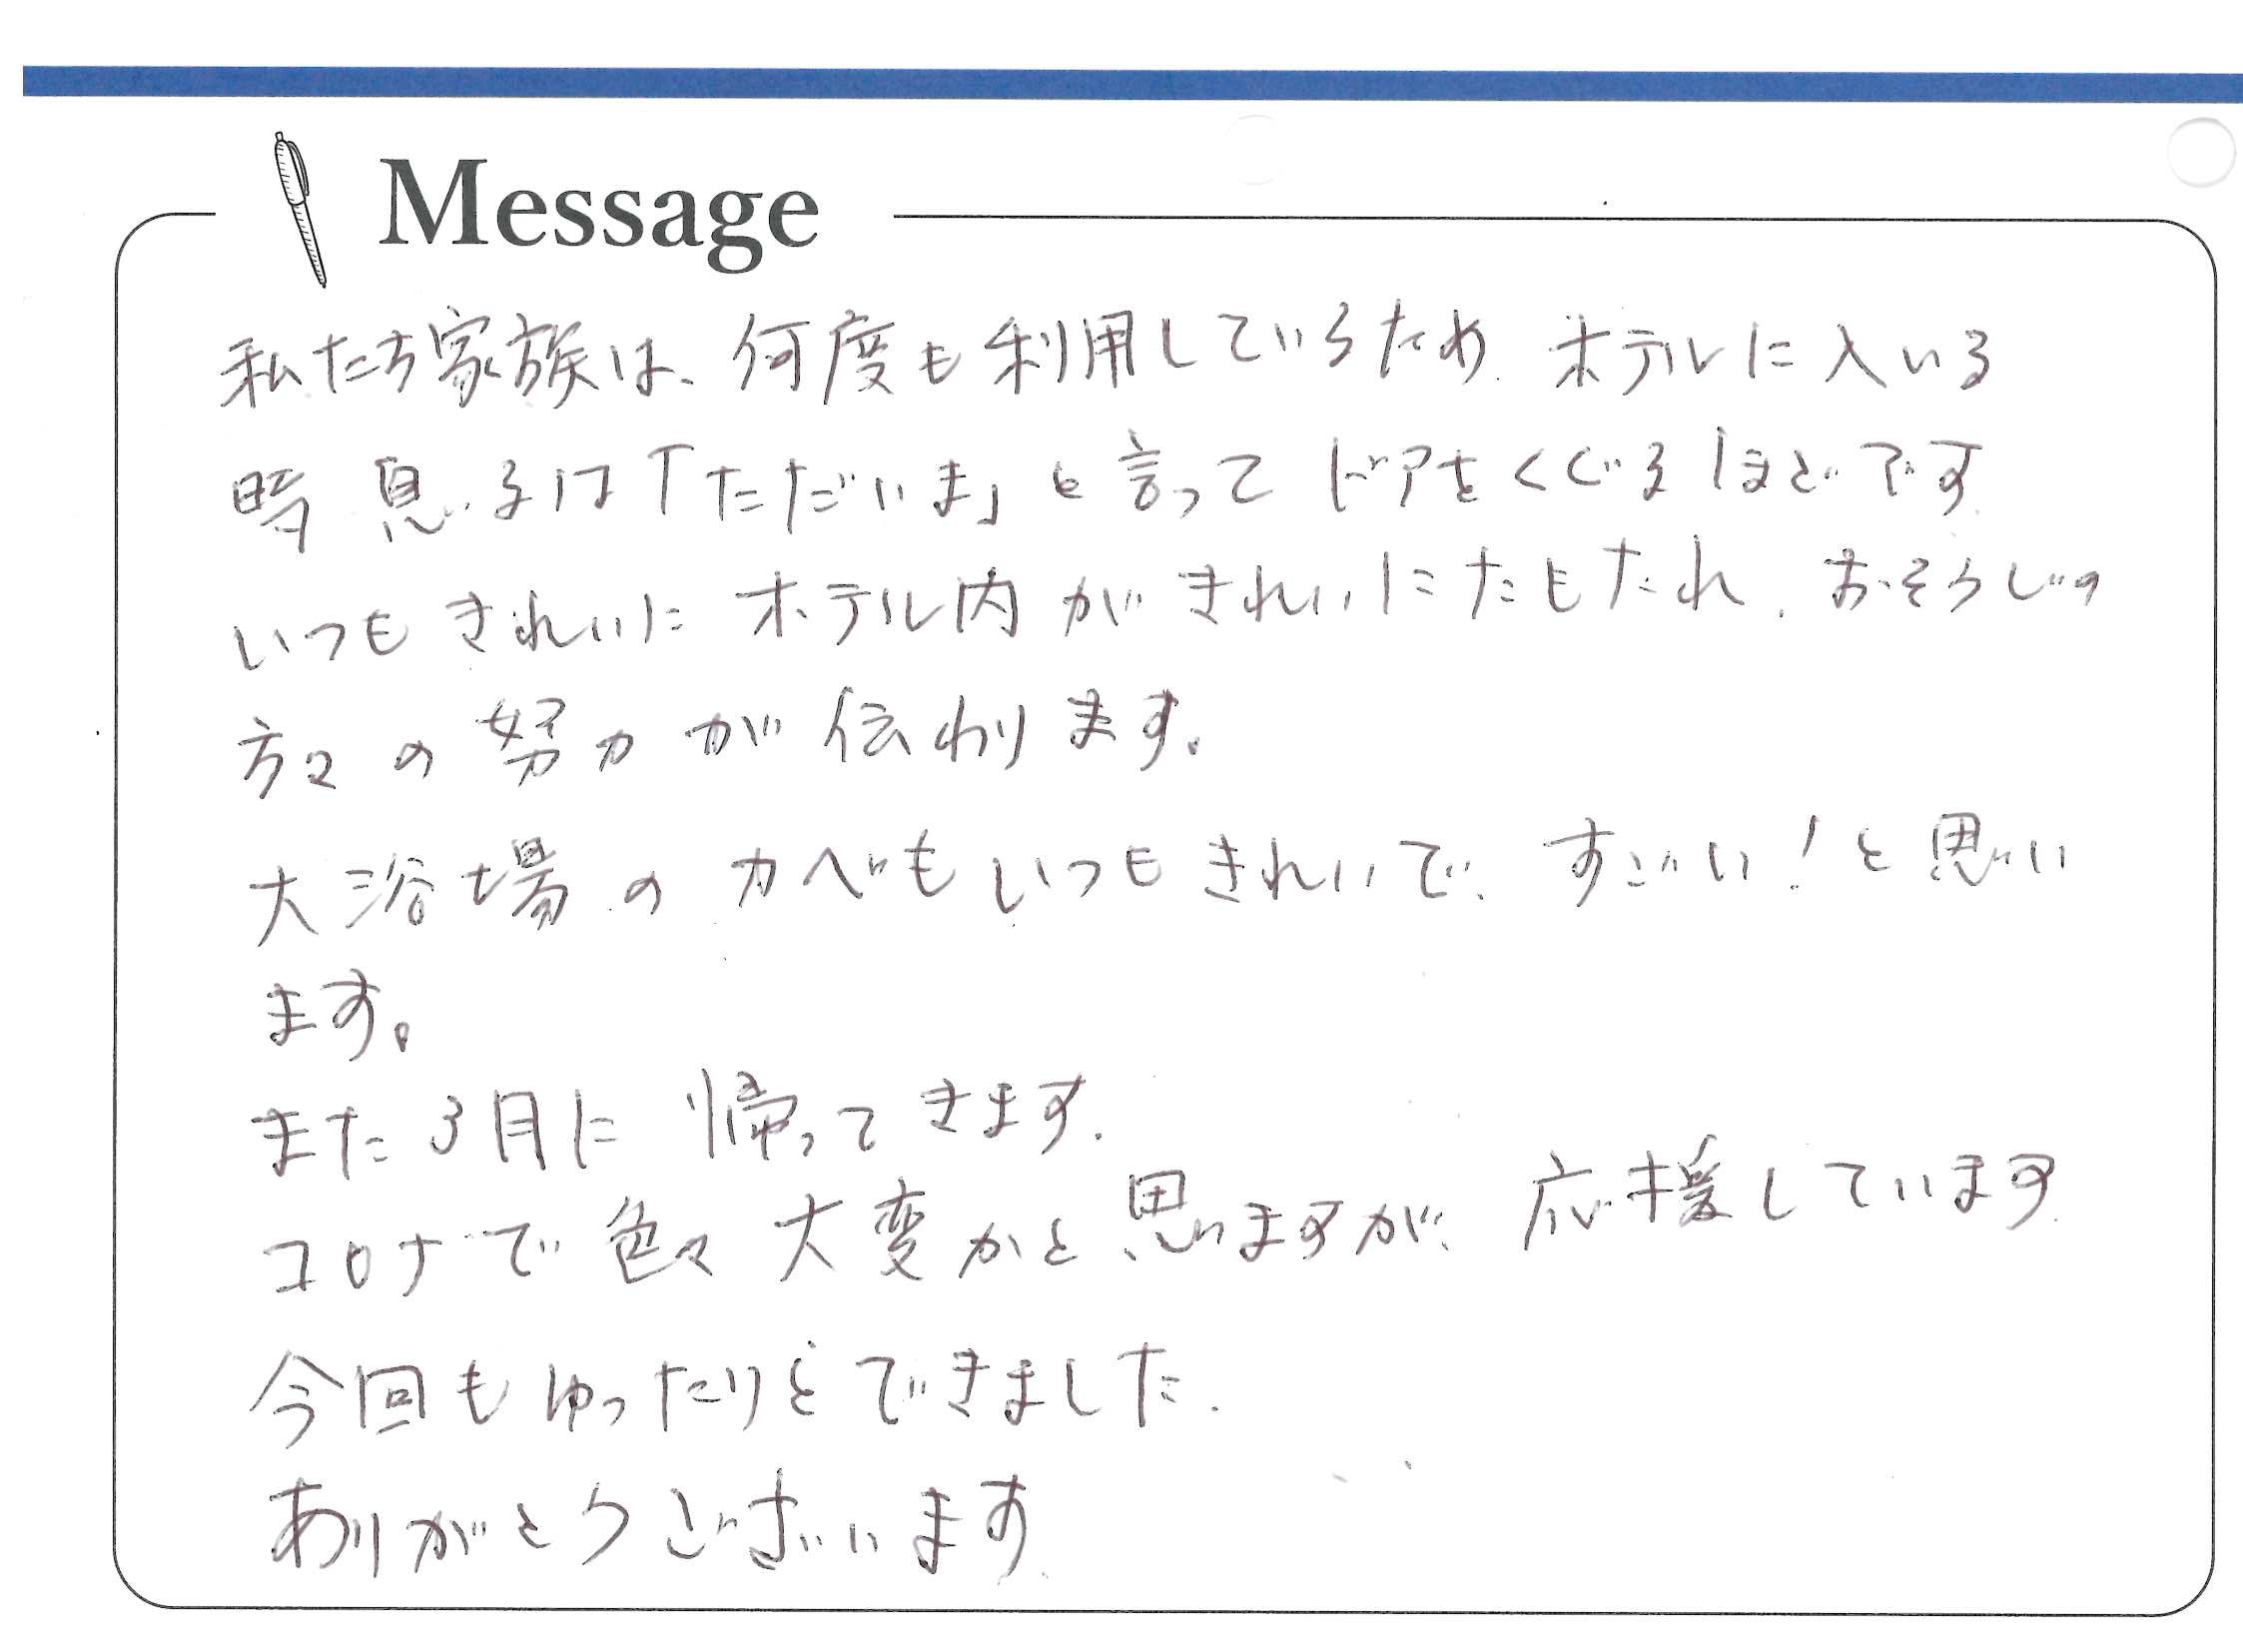 Message
私たち家族は、何度も利用しているため、ホテルに入いる
時 息子は「ただいま」と言って ドアをくぐるほどです。
いつも きれいに ホテル内が きれいにたもたれ、おそうじの
方々の 努力が 伝わります。
大浴場の カベも いつも きれいで、すごい!と思い
ます。
また 3月に 帰ってきます。
コロナで 色々 大変かと思いますが、応援しています。
今回も ゆったりとできました。
ありがとうございます。